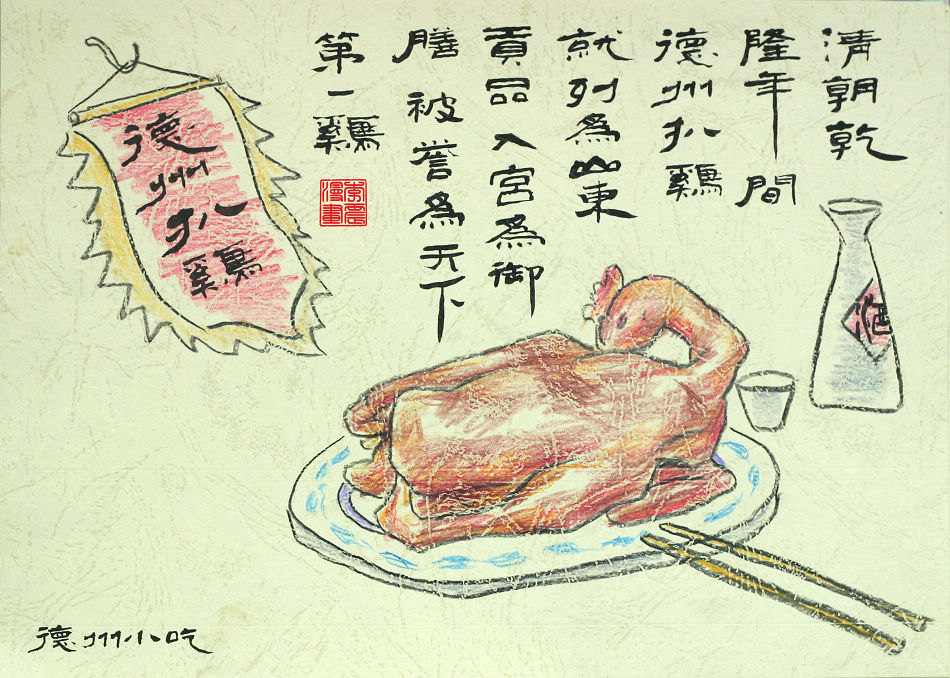 清朝乾
隆年間
德州扒鷄
就列為山東
貢品入宮為御
膳被誉為天下
第一鷄
德州扒鷄
酒
德州小吃